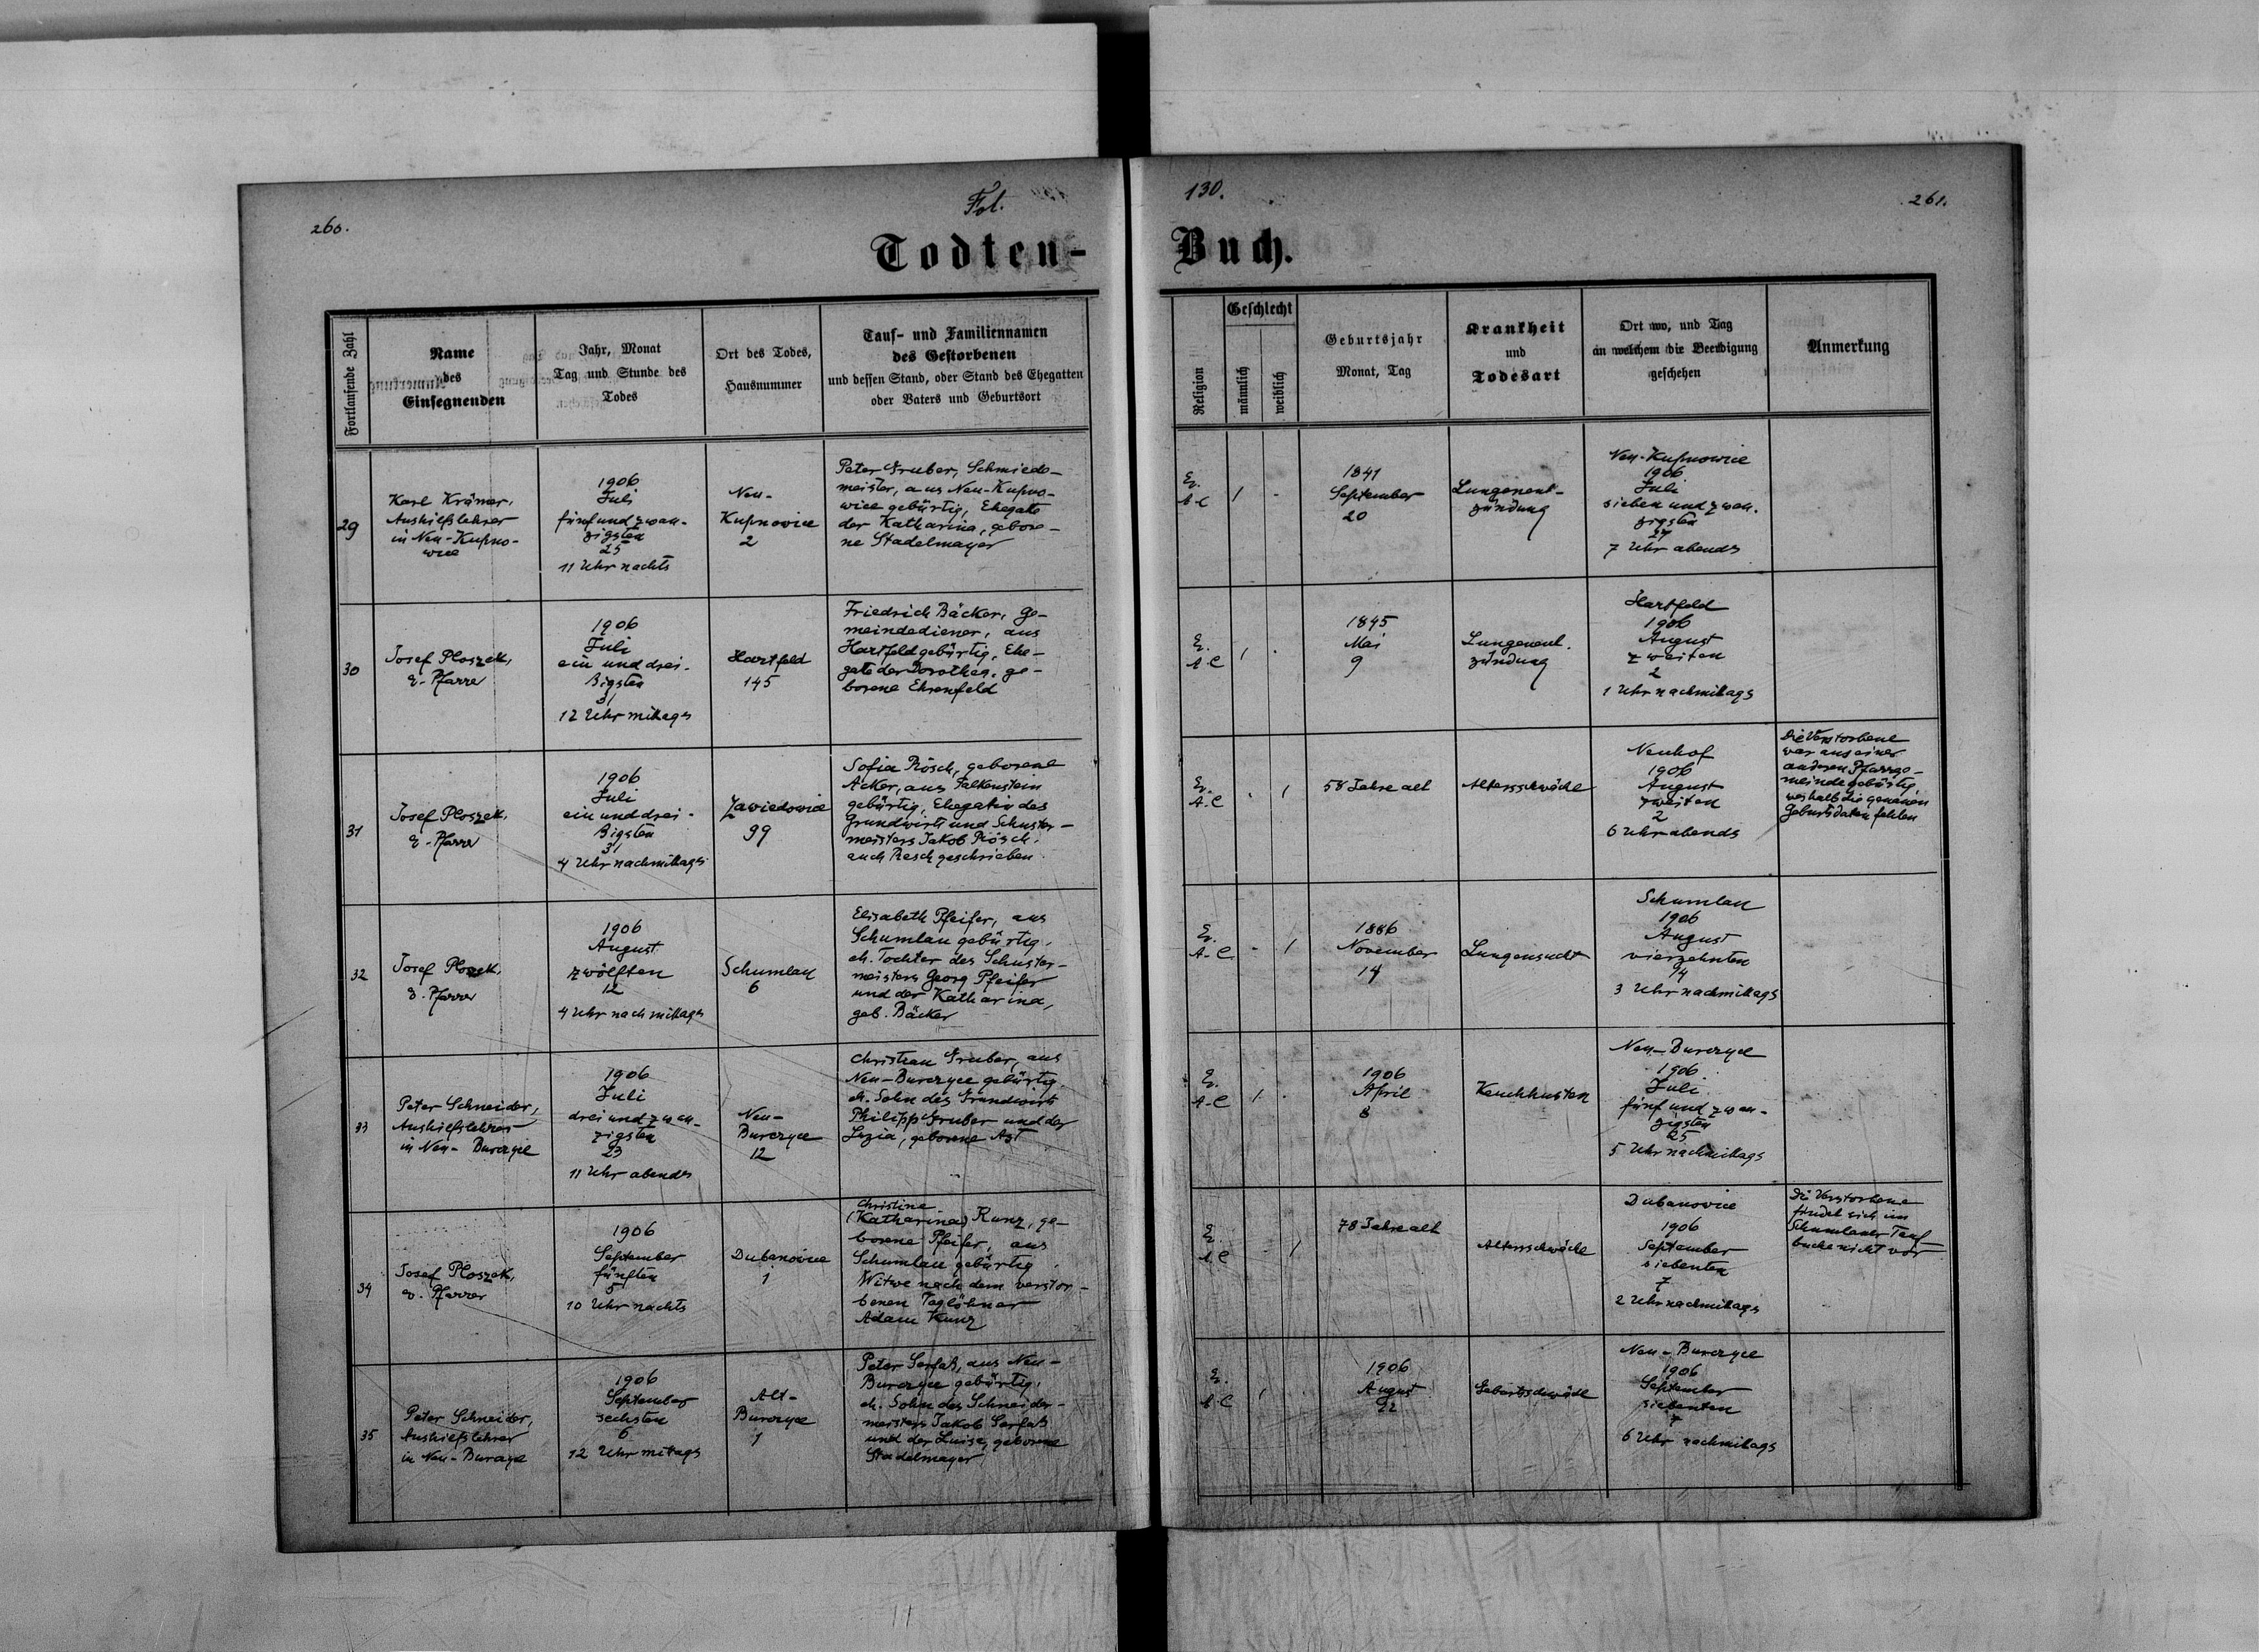 260.
Fol.
130.
261.
Todten-
Buch.
Fortlaufende Zahl
Name
des
Einsegnenden
Jahr, Monat
Tag und Stunde des
Todes
Ort des Todes,
Hausnummer
Tauf- und Familiennamen
des Gestorbenen
und dessen Stand, oder Stand des Ehegatten
oder Vaters und Geburtsort
Religion
Geschlecht
männlich
weiblich
Geburtsjahr
Monat, Tag
Krankheit
und
Todesart
Ort wo, und Tag
an welchem die Beerdigung
geschehen
Anmerkung
29
Karl Krämer,
Aushilfslehrer
in Neu-Kupno-
wice
1906
Juli
fünfundzwan-
zigsten
25
11 Uhr nachts
Neu-
Kupnowice
2
Peter Gruber, Schmiede-
meister, aus Neu-Kupno-
wice gebürtig, Ehegatte
der Katharina, gebore-
ne Stadelmayer
Ev.
A-C
1
-
1841
September
20
Lungenent-
zündung
Neu-Kupnowice
1906
Juli
sieben und zwan-
zigsten
27
7 Uhr abends
30
Josef Ploszek,
ev. Pfarrer
1906
Juli
ein und drei-
ßigsten
31
12 Uhr mittags
Hartfeld
145
Friedrich Bäcker, Ge-
meindediener, aus
Hartfeld gebürtig, Ehe-
gatte der Dorothea, ge-
borene Ehrenfeld
Ev.
A.C
1
-
1845
Mai
9
Lungenent-
zündung
Hartfeld
1906
August
zweiten
2
1 Uhr nachmittags
31
Josef Ploszek,
ev. Pfarrer
1906
Juli
ein und drei-
ßigsten
31
4 Uhr nachmittags
Zawiedowice
99
Sofia Rösch, geborene
Acker, aus Falkenstein
gebürtig, Ehegattin des
Grundwirts und Schuster-
meisters Jakob Rösch,
auch Resch geschrieben
Ev.
A.C
-
1
58 Jahre alt
Altersschwäche
Neuhof
1906
August
zweiten
2
6 Uhr abends
Die Verstorbene
war aus einer
anderen Pfarrge-
meinde gebürtig,
weshalb die genauen
Geburtsdaten fehlen
32
Josef Ploszek,
ev. Pfarrer
1906
August
zwölften
12
4 Uhr nachmittags
Schumlau
6
Elisabeth Pfeifer, aus
Schumlau gebürtig,
eh. Tochter des Schuster-
meisters Georg Pfeifer
und der Katharina,
geb. Bäcker
Ev.
A-C
-
1
1886
November
14
Lungensucht
Schumlau
1906
August
vierzehnten
14
3 Uhr nachmittags
33
Peter Schneider,
Aushilfslehrer
in Neu-Burczyce
1906
Juli
drei und zwan-
zigsten
23
11 Uhr abends
Neu-
Burczyce
12
Christian Gruber, aus
Neu-Burczyce gebürtig,
eh. Sohn des Grundwirts
Philipp Gruber und der
geborene
Ev.
A-C
1
-
1906
April
8
Keuchhusten
Neu-Burczyce
1906
Juli
fünf und zwan-
zigsten
25
5 Uhr nachmittags
34
Josef Ploszek,
ev. Pfarrer
1906
September
fünften
5
10 Uhr nachts
Dubanowice
1
Christine
(Katharina) Kunz, ge-
borene Pfeifer, aus
Schumlau gebürtig,
Witwe nach dem verstor-
benen Taglöhner
Adam Kunz
Ev.
A.C
-
1
78 Jahre alt
Altersschwäche
Dubanowice
1906
September
siebenten
7
2 Uhr nachmittags
Die Verstorbene
findet sich im
Schumlauer Tauf-
buche nicht vor
35
Peter Schneider,
Aushilfslehrer
in Neu-Burczyce
1906
September
sechsten
6
12 Uhr mittags
Alt-
Burczyce
1
Peter Serfaß, aus Neu-
Burczyce gebürtig,
eh. Sohn des Schneider-
meisters Jakob Serfaß
und der Luise, geborene
Stadelmayer
Ev.
A.C
1
-
1906
August
22
Geburtsschwäche
Neu-Burczyce
1906
September
siebenten
7
6 Uhr nachmittags